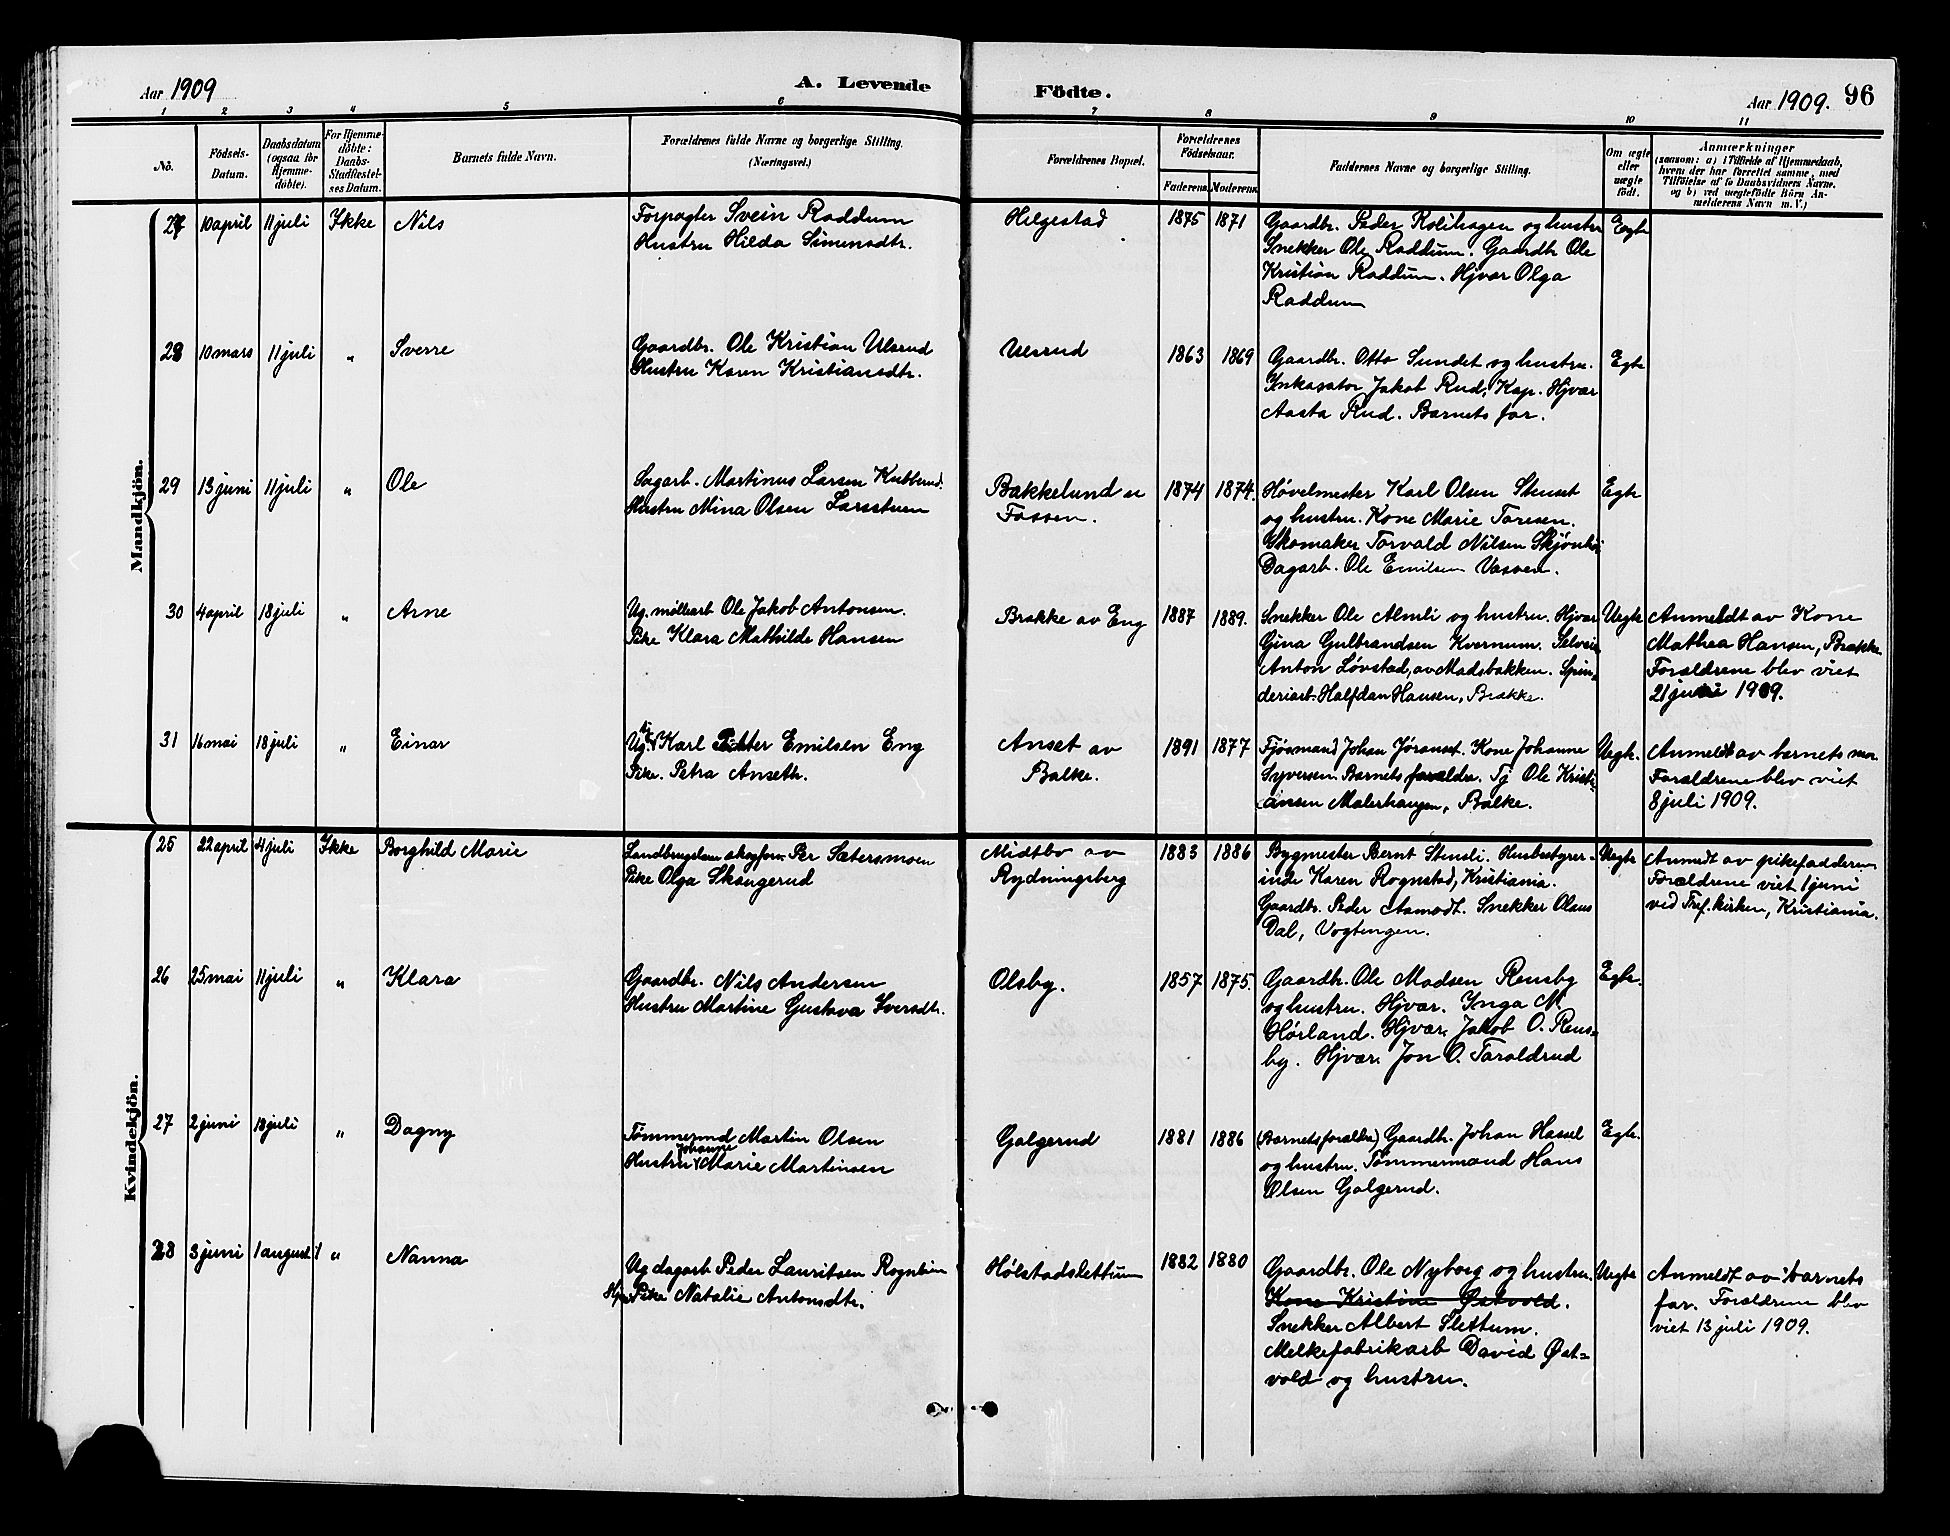 Aar 1909
A. Levende
Födte.
Aar 1909. 96
1 2 3 4 5 6 7 8 9 10 11
No.
Födsels-
Datum.
Daabsdatum
(ogsaa for
Hjemme-
döbte).
For Hjemme-
döbte:
Daabs-
Stadfæstel-
ses Datum.
Barnets fulde Navn.
Forældrenes fulde Navne og borgerlige Stilling.
(Næringsvei.)
Forældrenes Bopæl.
Forældrenes
Födselsaar.
Faderens. Moderens.
Faddernes Navne og borgerlige Stilling.
Om ægte
eller
uægte
födt.
Anmærkninger
(saasom: a) i Tilfælde af Hjemmedaab,
hvem der har forrettet samme, med
Tilföielse af to Daabsvidners Navne,
og b) ved uægtefödte Börn An-
melderens Navn m. V.)
Mandkjön.
27 10 april 11 juli Ikke Nils
Forpagter Svein Raddum
Hustru Hilda Simensdtr.
Helgestad
1875 1871
Gaardbr. Peder Kolihagen og hustru
Snekker Ole Raddum. Gaardbr Ole
Kristian Raddum. Hjvær Olga
Raddum
Egte
28 10 mars 11 juli " Sverre
Gaardbr. Ole Kristian Ulsrud
Hustru Karen Kristiansdtr.
Ulsrud
1863 1869
Gaardbr. Otto Sundet og hustru.
Inkasator Jakob Rud, Kap. Hjvær
Aasta Rud. Barnets far.
Egte
29 13 juni 11 juli " Ole
Sagarb. Martinus Larsen Kubberud.
Hustru Mina Olsen Larsstuen
Bakkelund u
Fossen.
1874 1874.
Høvelmester Karl Olsen Stenset
og hustru. Kone Marie Toresen.
Skomaker Torvald Nilsen
Dagarb. Ole Emilsen
Egte
30 4 april 18 juli " Arne
Ug. møllearb Ole Jakob Antonsen.
Pike Klara Mathilde Hansen
Brakke av Eng
1887 1889.
Snekker Ole Almli og hustru. Hjvær
Gina Gulbrandsen Kvernum. Selveier
Anton Løvstad, av Madsbakken. Spin-
deriarb. Halfdan Hansen, Brakke.
Uegte
Anmeldt av Kone
Mathea Hansen, Brakke
Forældrene blev viet
21 juni 1909.
31 16 mai 18 juli " Einar
Ug. Karl Petter Emilsen Eng
Pike. Petra Ansethr.
Anset av
Balke.
1891 1877
Fjøsmand Johan Jøranset. Kone Johanne
Syversen. Barnets forældre. Tj Ole Kristi-
ansen Malerhaugen, Balke.
Uegte.
Anmeldt av barnets mor
Forældrene blev viet
8 juli 1909.
Kvindekjön.
25 22 april 4 juli Ikke Borghild Marie
Landbrugslær. skogforv. Per Sætersmoen
Pike Olga Skaugerud
Midtbo av
Rydningsberg
1883 1886
Bygmester Bernt Stensli. Husbestyrer-
inde Karen Rognstad, Kristiania.
Gaardbr. Peder Aamodt. Snekker Olaus
Dal, Vogtengen.
Uegte
Anmeldt av pikefadderen
Forældrene viet 1 juni
ved Tref. kirken, Kristiania.
26 25 mai 11 juli " Klara
Gaardbr. Nils Andersen
Hustru Martine Gustava Iversdtr.
Olsby.
1857 1875.
Gaardbr. Ole Madsen Rensby
og hustru. Hjvær. Inga N.
Hørland. Hjvær. Jakob O. Rens-
by. Hjvær. Jon O. Taraldrud
Egte.
27 2 juni 18 juli " Dagny
Tømmermd Martin Olsen
Johanne
Hustru Marie Martinsen
Galgerud
1881 1886
(Barnets forældre) Gaardbr. Johan Hassel
og hustru. Tømmermand Hans
Olsen Galgerud.
Egte.
28 3 juni 1 august " Nanna
Ug dagarb Peder Lauritsen Rognlien
Pike Natalie Antonsdtr.
Hølstadslettum
1882 1880
Gaardbr. Ole Nyborg og hustru.
Kone Kristine Østvold.
Snekker Albert Slettum.
Melkefabrikarb David Øst-
vold og hustru.
Uegte
Anmeldt av barnets
far. Forældrene blev
viet 13 juli 1909.